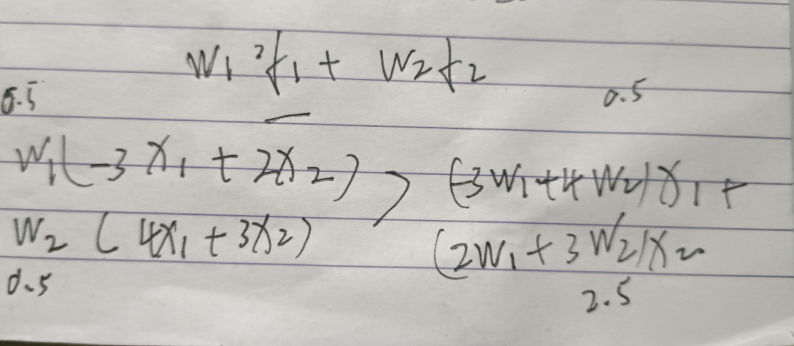 W₁ f₁ + W₂ f₂
0.5 0.5
W₁(-3x₁ + 2x₂) > (-3W₁+4W₂)x₁ +
W₂ (4x₁ + 3x₂) (2W₁ + 3W₂)x₂
0.5 2.5